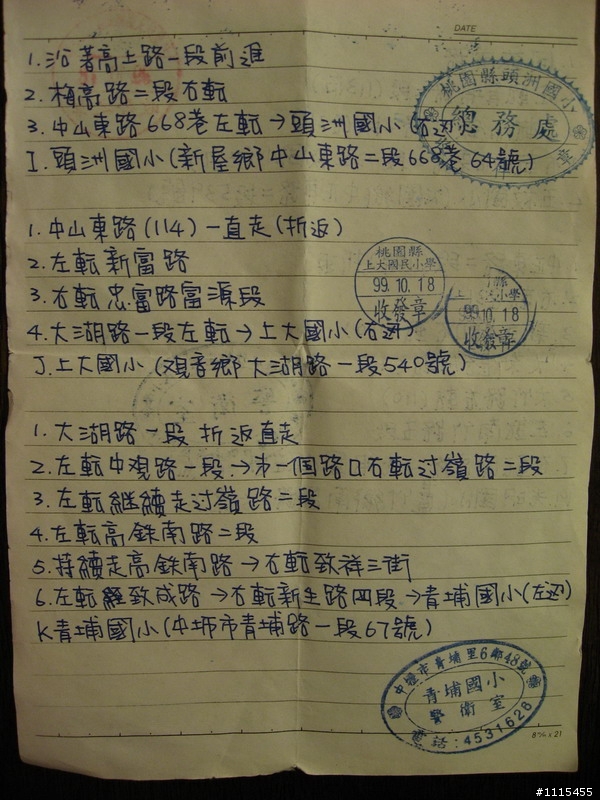 DATE
1.沿著高上路一段前進
2.梅高路二段右転
3.中山東路668巷左転→頭洲國小(右边)
桃園縣頭洲國小學
總務處
I.頭洲國小(新屋鄉中山東路二段668巷64號)
1.中山東路(114)一直走(折返)
2.左転新富路
3.右転忠富路富源段
4.大湖路一段左転→上大國小(右边)
桃園縣
上大國民小學
99.10.18
收發章
縣
民小學
99.10.18
收發章
J.上大國小(观音鄉大湖路一段540號)
1.大湖路一段折返直走
2.左転中观路一段→才一個路口右転过嶺路二段
3.左転継續走过嶺路二段
4.左転高鉄南路二段
5.持續走高鉄南路→右転致祥三街
6.左転經致成路→右転新生路四段→青埔國小(左边)
K青埔國小(中坜市青埔路一段67號)
中壢市青埔里6鄰48號
青埔國小
警衛室
電話:4531628
876x21
#1115455